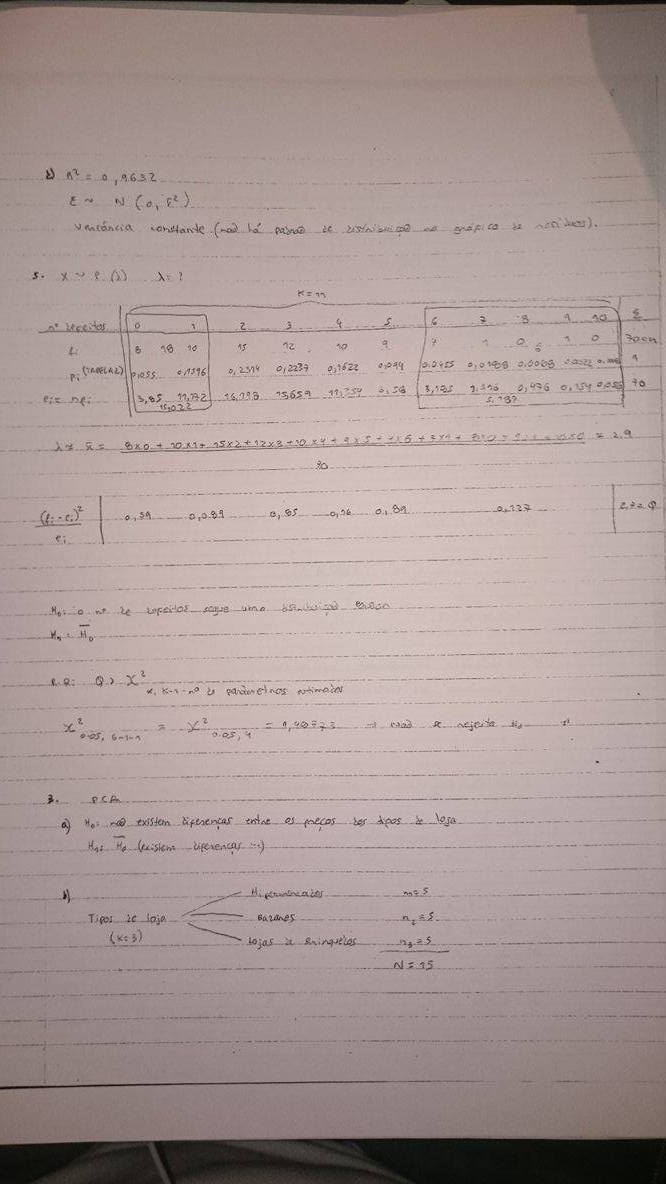 R² = 0,9632
ε ~ N (0, σ²)
variância constante (não há padrão de distribuição no gráfico de resíduos).
5. X ~ P (λ) λ = ?
K = 11
nº defeitos 0 1 2 3 4 5 6 7 8 9 10 Σ
8 18 10 15 12 10 9 7 1 0 1 0 70 = n
pi (TABELA 2) 0,055 0,1596 0,2314 0,2237 0,1622 0,094 0,0455 0,0188 0,0068 0,0022 1
ei = npi 3,85 11,172 16,198 15,659 11,354 6,58 3,185 1,316 0,476 0,154 70
15,022 5,187
λ ≈ x̄ = = 2,9
70
(fi - ei)² 0,39 0,089 0,85 0,16 0,89 0,127
ei
H₀: o nº de defeitos segue uma distribuição Poisson
H₁: H̅₀
R.R: Q > X²
α, K-1-nº de parâmetros estimados
X² 0.05, 6-1-1 = X² 0.05, 4 = 9,48773 → não se rejeita H₀
3.
a) H₀: não existem diferenças entre os preços dos tipos de loja
H₁: H̅₀ (existem diferenças ...)
b) Hipermercados n₁ = 5
Tipos de loja Bazares n₂ = 5
(K = 3) Lojas de Brinquedos n₃ = 5
N = 15